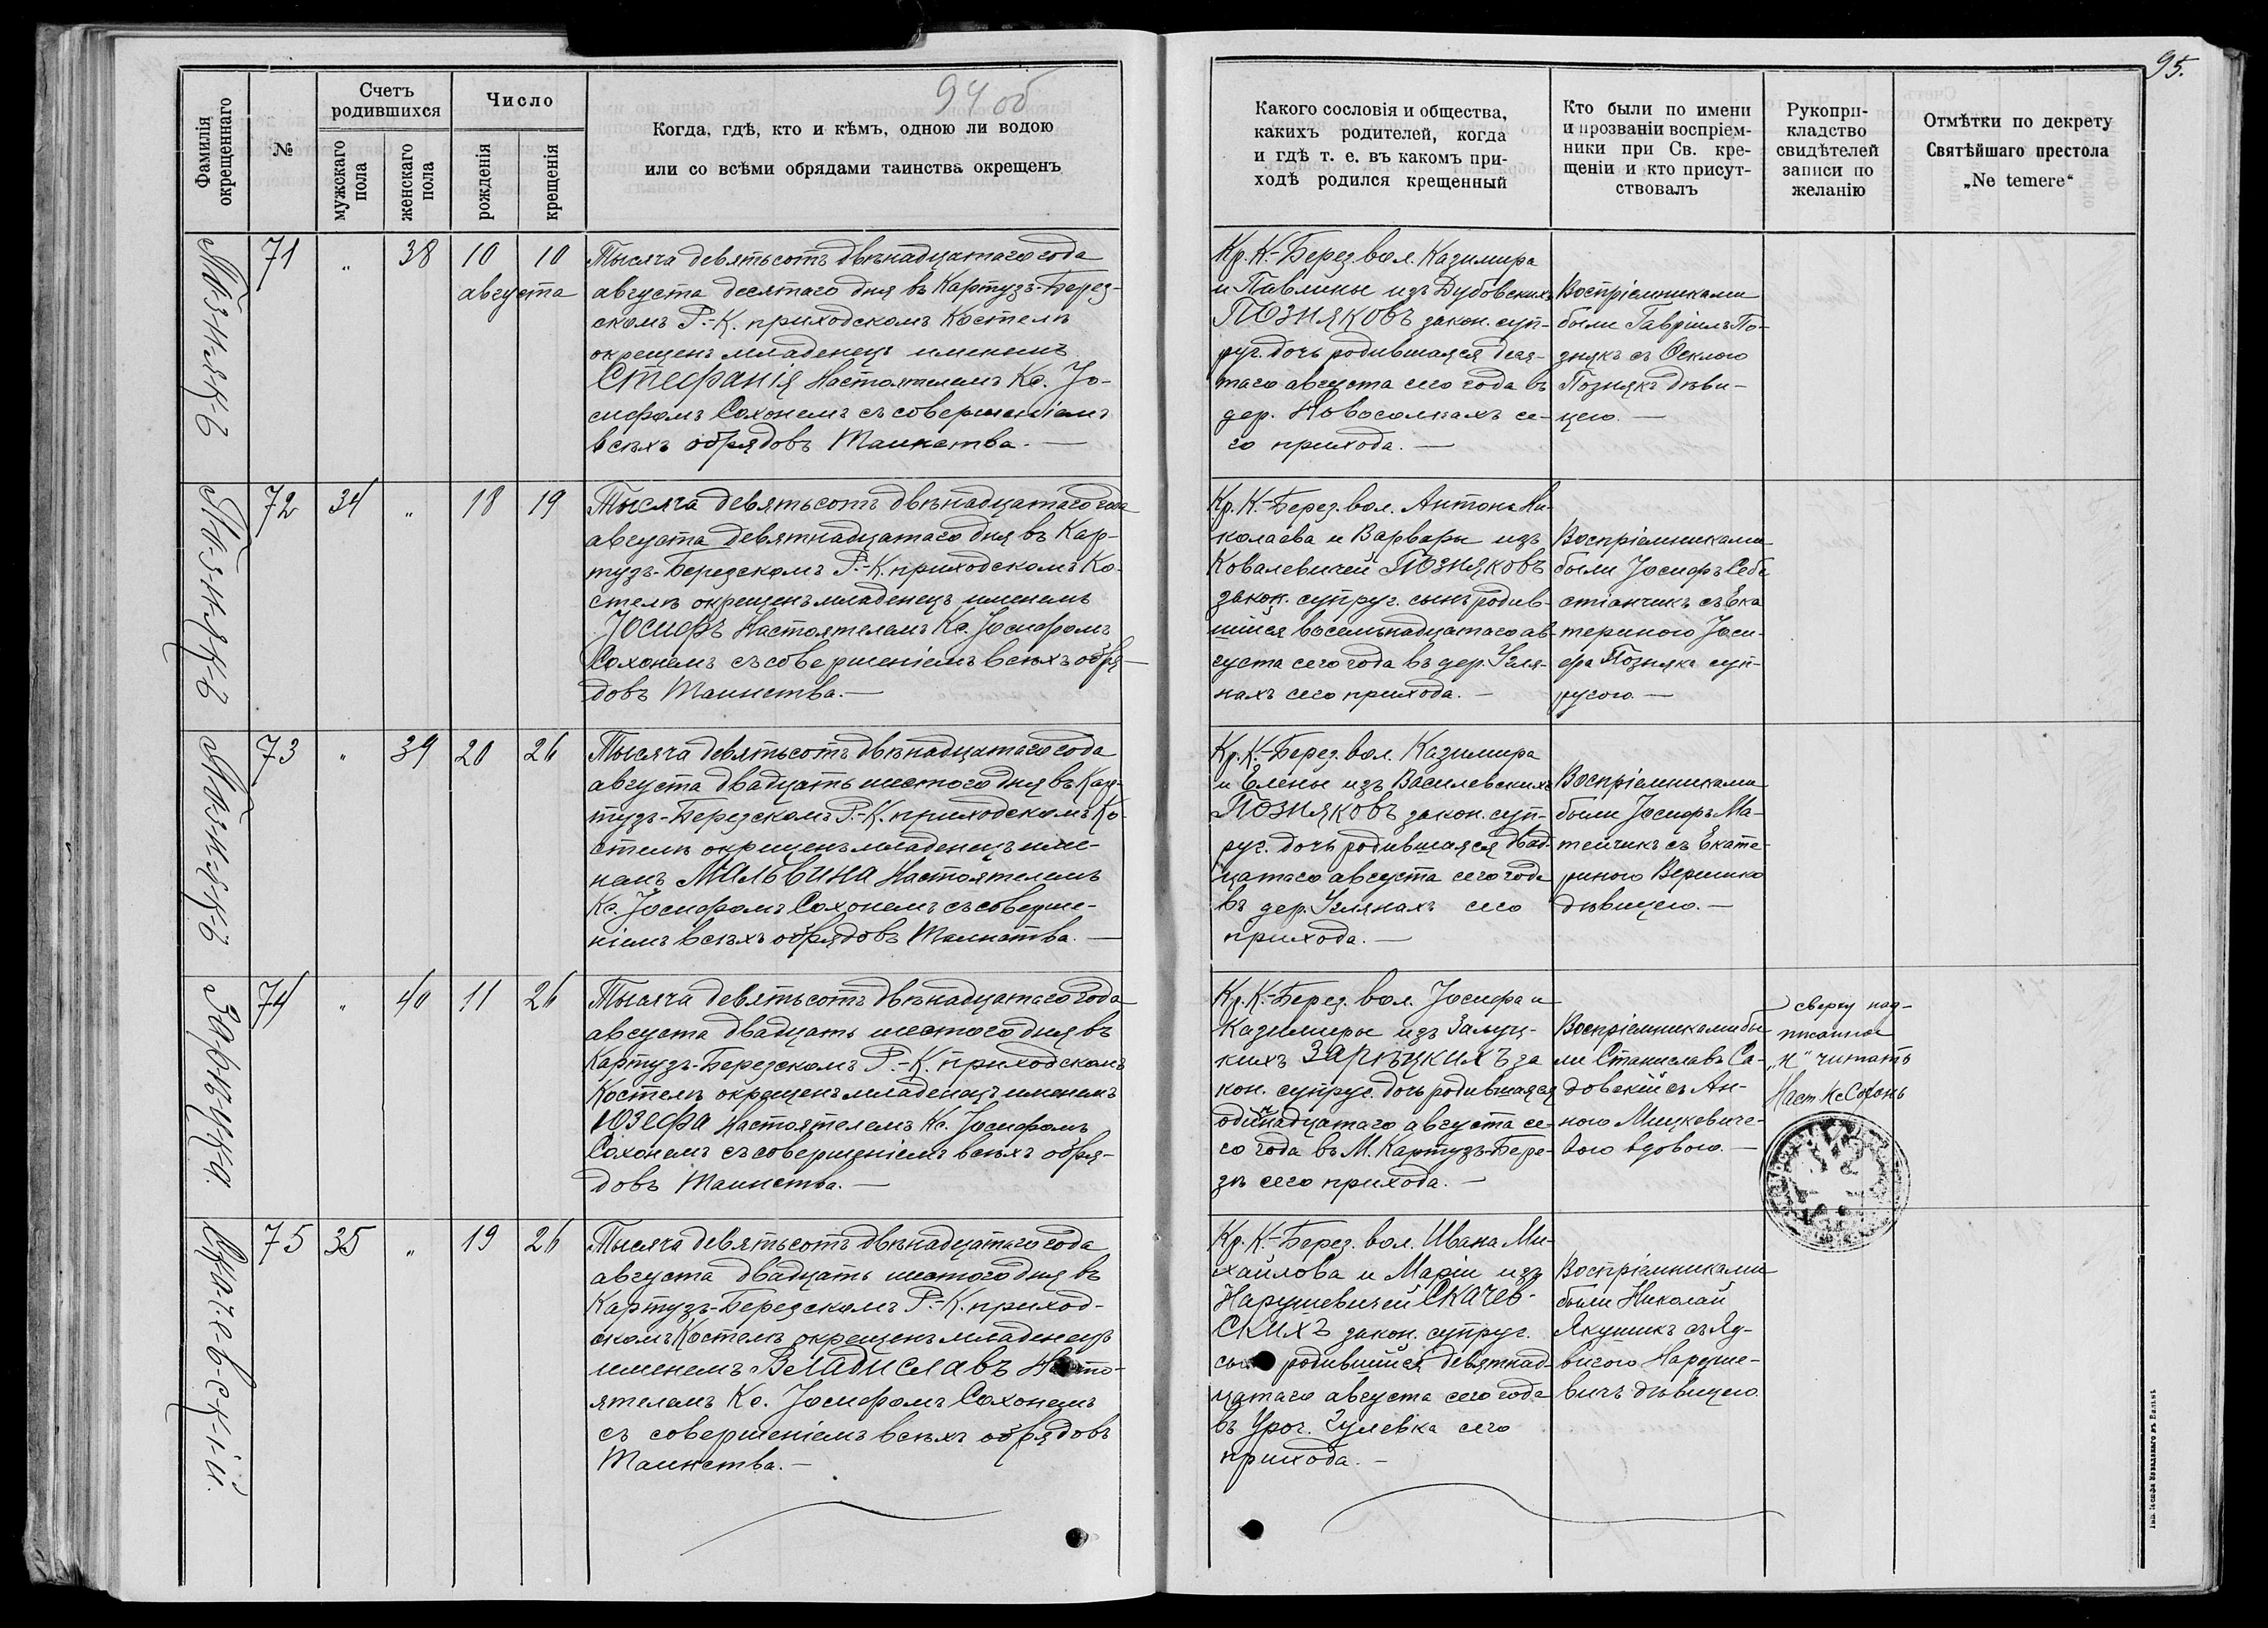 94 об
95.
Фамилія окрещеннаго
№
Счетъ родившихся
мужскаго пола
женскаго пола
Число
рожденія
крещенія
Когда, гдѣ, кто и кѣмъ, одною ли водою
или со всѣми обрядами таинства окрещенъ
Какого сословія и общества,
какихъ родителей, когда
и гдѣ т. е. въ какомъ при-
ходѣ родился крещенный
Кто были по имени
и прозванію воспріем-
ники при Св. кре-
щеніи и кто присут-
ствовалъ
Рукопри-
кладство
свидѣтелей
записи по
желанію
Отмѣтки по декрету
Святѣйшаго престола
„Ne temere“
Познякъ
71 „ 38 10 10
августа
Тысяча девятьсотъ двѣнадцатаго года
августа десятаго дня въ Картузъ-Берез-
скомъ Р.-К. приходскомъ Костелѣ
окрещенъ младенецъ именемъ
Стефанія Настоятелемъ Кс. Іо-
сифомъ Сохонемъ съ совершеніемъ
всѣхъ обрядовъ Таинства. —
Кр. К.-Берез. вол. Казимира
и Павлины изъ Дубовскихъ
Позняковъ закон. суп-
руг. дочь родившаяся деся-
таго августа сего года въ
дер. Новосолкахъ се-
го прихода. —
Воспріемниками
были Гавріилъ По-
знякъ съ Ѳеклою
Познякъ дѣви-
цею. —
Познякъ
72 34 „ 18 19
Тысяча девятьсотъ двѣнадцатаго года
августа девятнадцатаго дня въ Кар-
тузъ-Березскомъ Р.-К. приходскомъ Ко-
стелѣ окрещенъ младенецъ именемъ
Іосифъ Настоятелемъ Кс. Іосифомъ
Сохонемъ съ совершеніемъ всѣхъ обря-
довъ Таинства. —
Кр. К.-Берез. вол. Антона Ни-
колаева и Варвары изъ
Ковалевичей Позняковъ
закон. супруг. сынъ родив-
шійся восемьнадцатаго ав-
густа сего года въ дер. Угля-
нахъ сего прихода. —
Воспріемниками
были Іосифъ Себе
стіанчикъ съ Ека
териною Іоси-
фа Позняка суп-
ругою. —
Познякъ
73 „ 39 20 26
Тысяча девятьсотъ двѣнадцатаго года
августа двадцать шестого дня въ Кар-
тузъ-Березскомъ Р.-К. приходскомъ Ко-
стелѣ окрещенъ младенецъ име-
немъ Мальвина Настоятелемъ
Кс. Іосифомъ Сохонемъ съ соверше-
ніемъ всѣхъ обрядовъ Таинства. —
Кр. К.-Берез. вол. Казимира
и Елены изъ Василевскихъ
Позняковъ закон. суп-
руг. дочь родившаяся двад-
цатаго августа сего года
въ дер. Углянахъ сего
прихода. —
Воспріемниками
были Іосифъ Ма-
тейчикъ съ Екате-
риною Верешко
дѣвицею. —
Зарѣцка
74 „ 40 11 26
Тысяча девятьсотъ двѣнадцатаго года
августа двадцать шестого дня въ
Картузъ-Березскомъ Р.-К. приходскомъ
Костелѣ окрещенъ младенецъ именемъ
Юзефа Настоятелемъ Кс. Іосифомъ
Сохонемъ съ совершеніемъ всѣхъ обря-
довъ Таинства. —
Кр. К.-Берез. вол. Іосифа и
Казимиры изъ Залуц-
кихъ Зарѣцкихъ за
кон. супруг. дочь родившаяся
одиннадцатаго августа се-
го года въ М. Картузъ-Бере-
зѣ сего прихода. —
Воспріемниками бы
ли Станиславъ Са-
довскій съ Ан-
ною Мицкевиче-
вою вдовою. —
сверху над-
писанное
„н“ читать
Наст. Кс Сохонь
Скачевскій.
75 35 „ 19 26
Тысяча девятьсотъ двѣнадцатаго года
августа двадцать шестого дня въ
Картузъ-Березскомъ Р.-К. приход-
скомъ Костелѣ окрещенъ младенецъ
именемъ Владиславъ Насто-
ятелемъ Кс. Іосифомъ Сохонемъ
съ совершеніемъ всѣхъ обрядовъ
Таинства. —
Кр. К.-Берез. вол. Ивана Ми-
хайлова и Маріи изъ
Нарушевичей Скачев-
скихъ закон. супруг.
сынъ родившійся девятнад-
цатаго августа сего года
въ Уроч. Гулевка сего
прихода. —
Воспріемниками
были Николай
Якушикъ съ Яд-
вигою Наруше-
вичъ дѣвицею